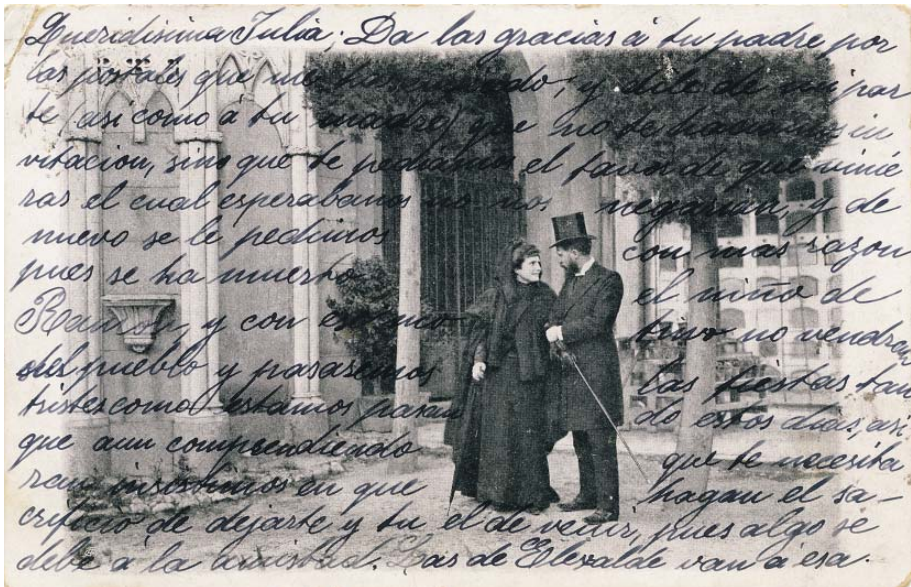 Queridisima Julia; Da las gracias á tu padre por
las postales que me has enviado, y dile de mi par
te (asi como á tu madre) que no te haciamos in
vitacion, sino que te pediamos el favor de que vinie
ras el cual esperabamos no nos negarian, y de
nuevo se le pedimos con mas razon
pues se ha muerto el niño de
Ramon, y con este motivo no vendran
del pueblo y pasaremos las fiestas tan
tristes como estamos pasan do estos dias, asi
que aun comprendiendo que te necesita
ran insistimos en que hagan el sa-
crificio de dejarte y tu el de venir, pues algo se
debe á la amistad. Las de Elexalde van á esa.